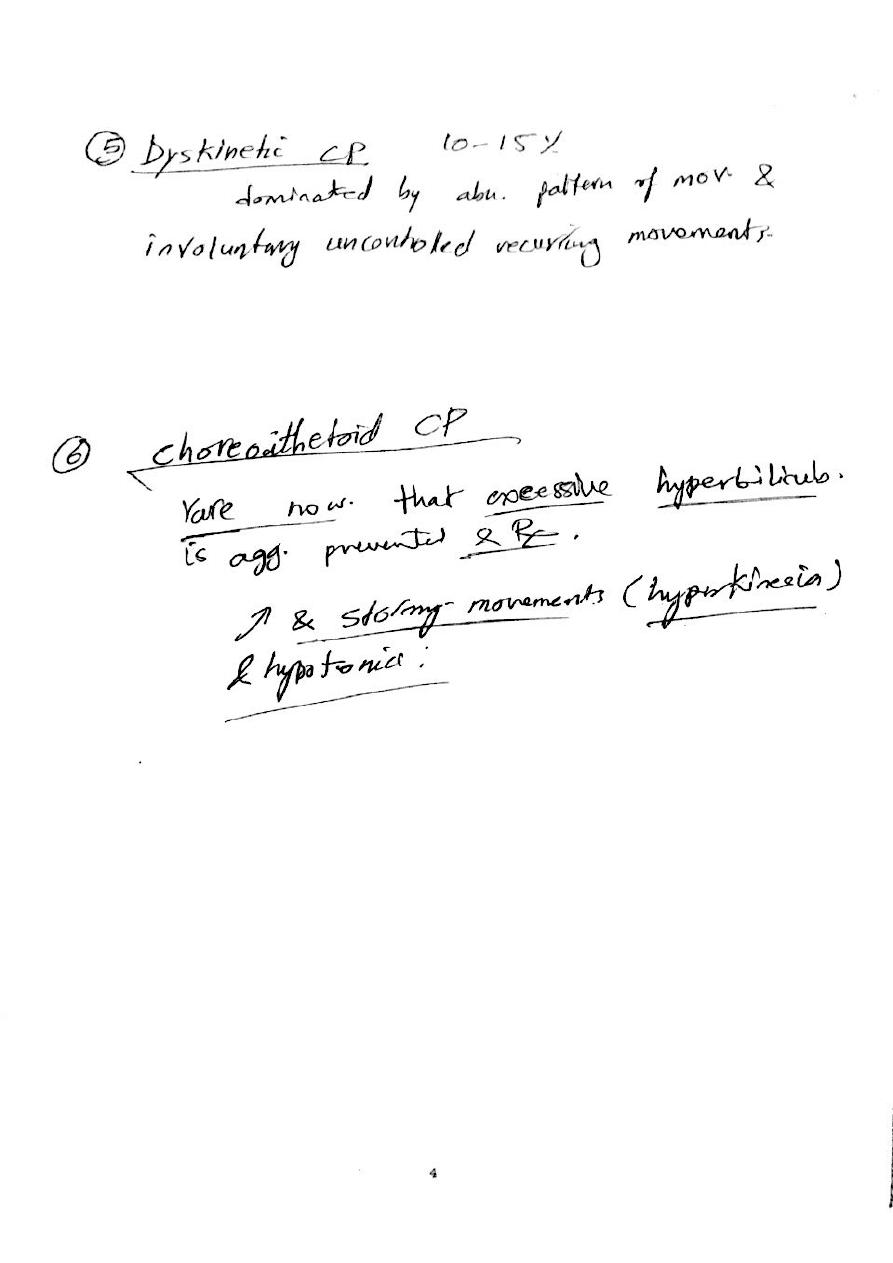 ⑤ Dyskinetic CP 10-15%
dominated by abn. pattern of mov. &
involuntary uncontroled recurring movements.
⑥ choreoathetoid CP
rare now. that excessive hyperbilirub.
is agg. prevented & Rx.
↗ & stormy movements (hyperkinesia)
& hypotonia.
4